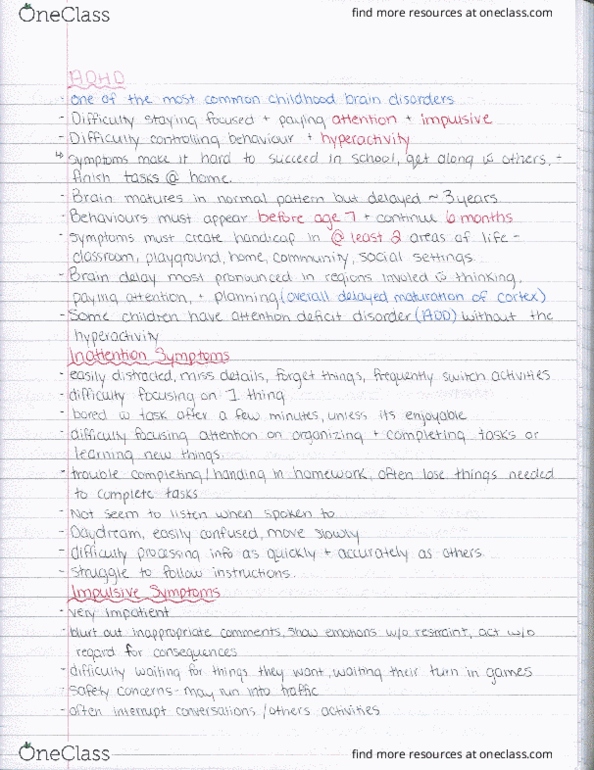 OneClass
find more resources at oneclass.com
ADHD
- one of the most common childhood brain disorders
- Difficulty staying focused + paying attention + impulsive
- Difficulty controlling behaviour + hyperactivity
↳ symptoms make it hard to succeed in school, get along w others, +
finish tasks @ home.
- Brain matures in normal pattern but delayed ~ 3 years
- Behaviours must appear before age 7 + continue 6 months
- symptoms must create handicap in @ least 2 areas of life -
classroom, playground, home, community, social settings.
- Brain delay most pronounced in regions involed w thinking,
paying attention, + planning (overall delayed maturation of cortex)
- Some children have attention deficit disorder (ADD) without the
hyperactivity
Inattention Symptoms
- easily distracted, miss details, forget things, frequently switch activities
- difficulty focusing on 1 thing
- bored w task after a few minutes, unless its enjoyable
- difficulty focusing attention on organizing + completing tasks or
learning new things.
- trouble completing/handing in homework, often lose things needed
to complete tasks
- Not seem to listen when spoken to
- Daydream, easily confused, move slowly
- difficulty processing info as quickly + accurately as others.
- struggle to follow instructions.
Impulsive Symptoms
- very impatient
- blurt out inappropriate comments, show emotions w/o restraint, act w/o
regard for consequences
- difficulty waiting for things they want, waiting their turn in games
- safety concerns - may run into traffic
- often interrupt conversations/others activities
OneClass
find more resources at oneclass.com